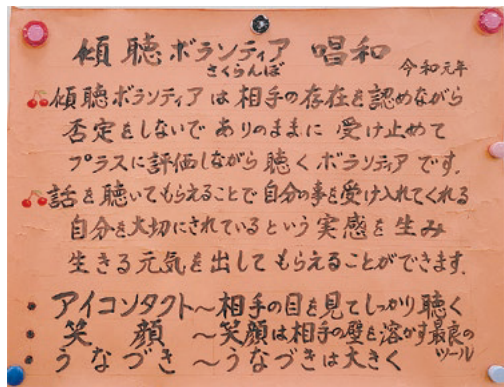 傾聴ボランティア 唱和
さくらんぼ
令和元年
傾聴ボランティアは相手の存在を認めながら
否定をしないでありのままに受け止めて
プラスに評価しながら聴くボランティアです。
話を聴いてもらえることで自分の事を受け入れてくれる
自分を大切にされているという実感を生み
生きる元気を出してもらえることができます。
・アイコンタクト～相手の目を見てしっかり聴く
・笑顔～笑顔は相手の壁を溶かす最良のツール
・うなづき～うなづきは大きく